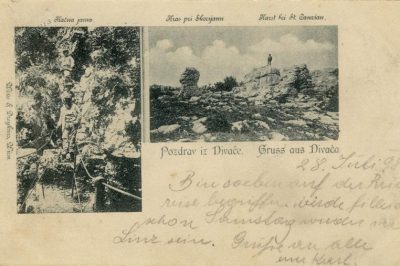 Kačna jama
Kras pri Škocijanu
Karst bei St. Canzian.
Pozdrav iz Divače. Gruss aus Divača
28. Juli 9
Bin soeben auf der
reise begriffen, werde
schon Samstag wieder in
Linz sein. Grüße an alle
euer Karl.